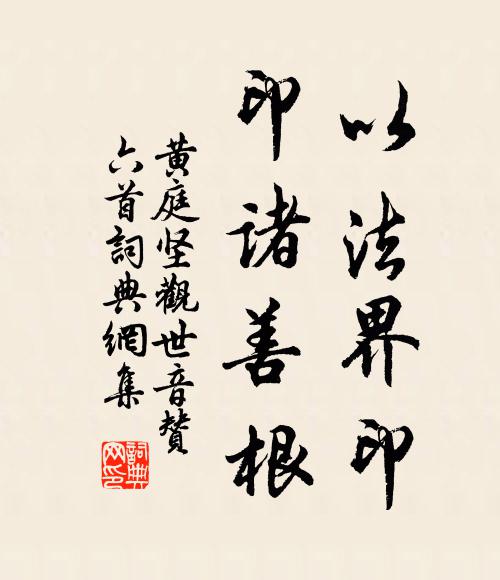 以法界印
印諸善根
黄庭坚觀世音贊
六首詞典網集
詞典
网印